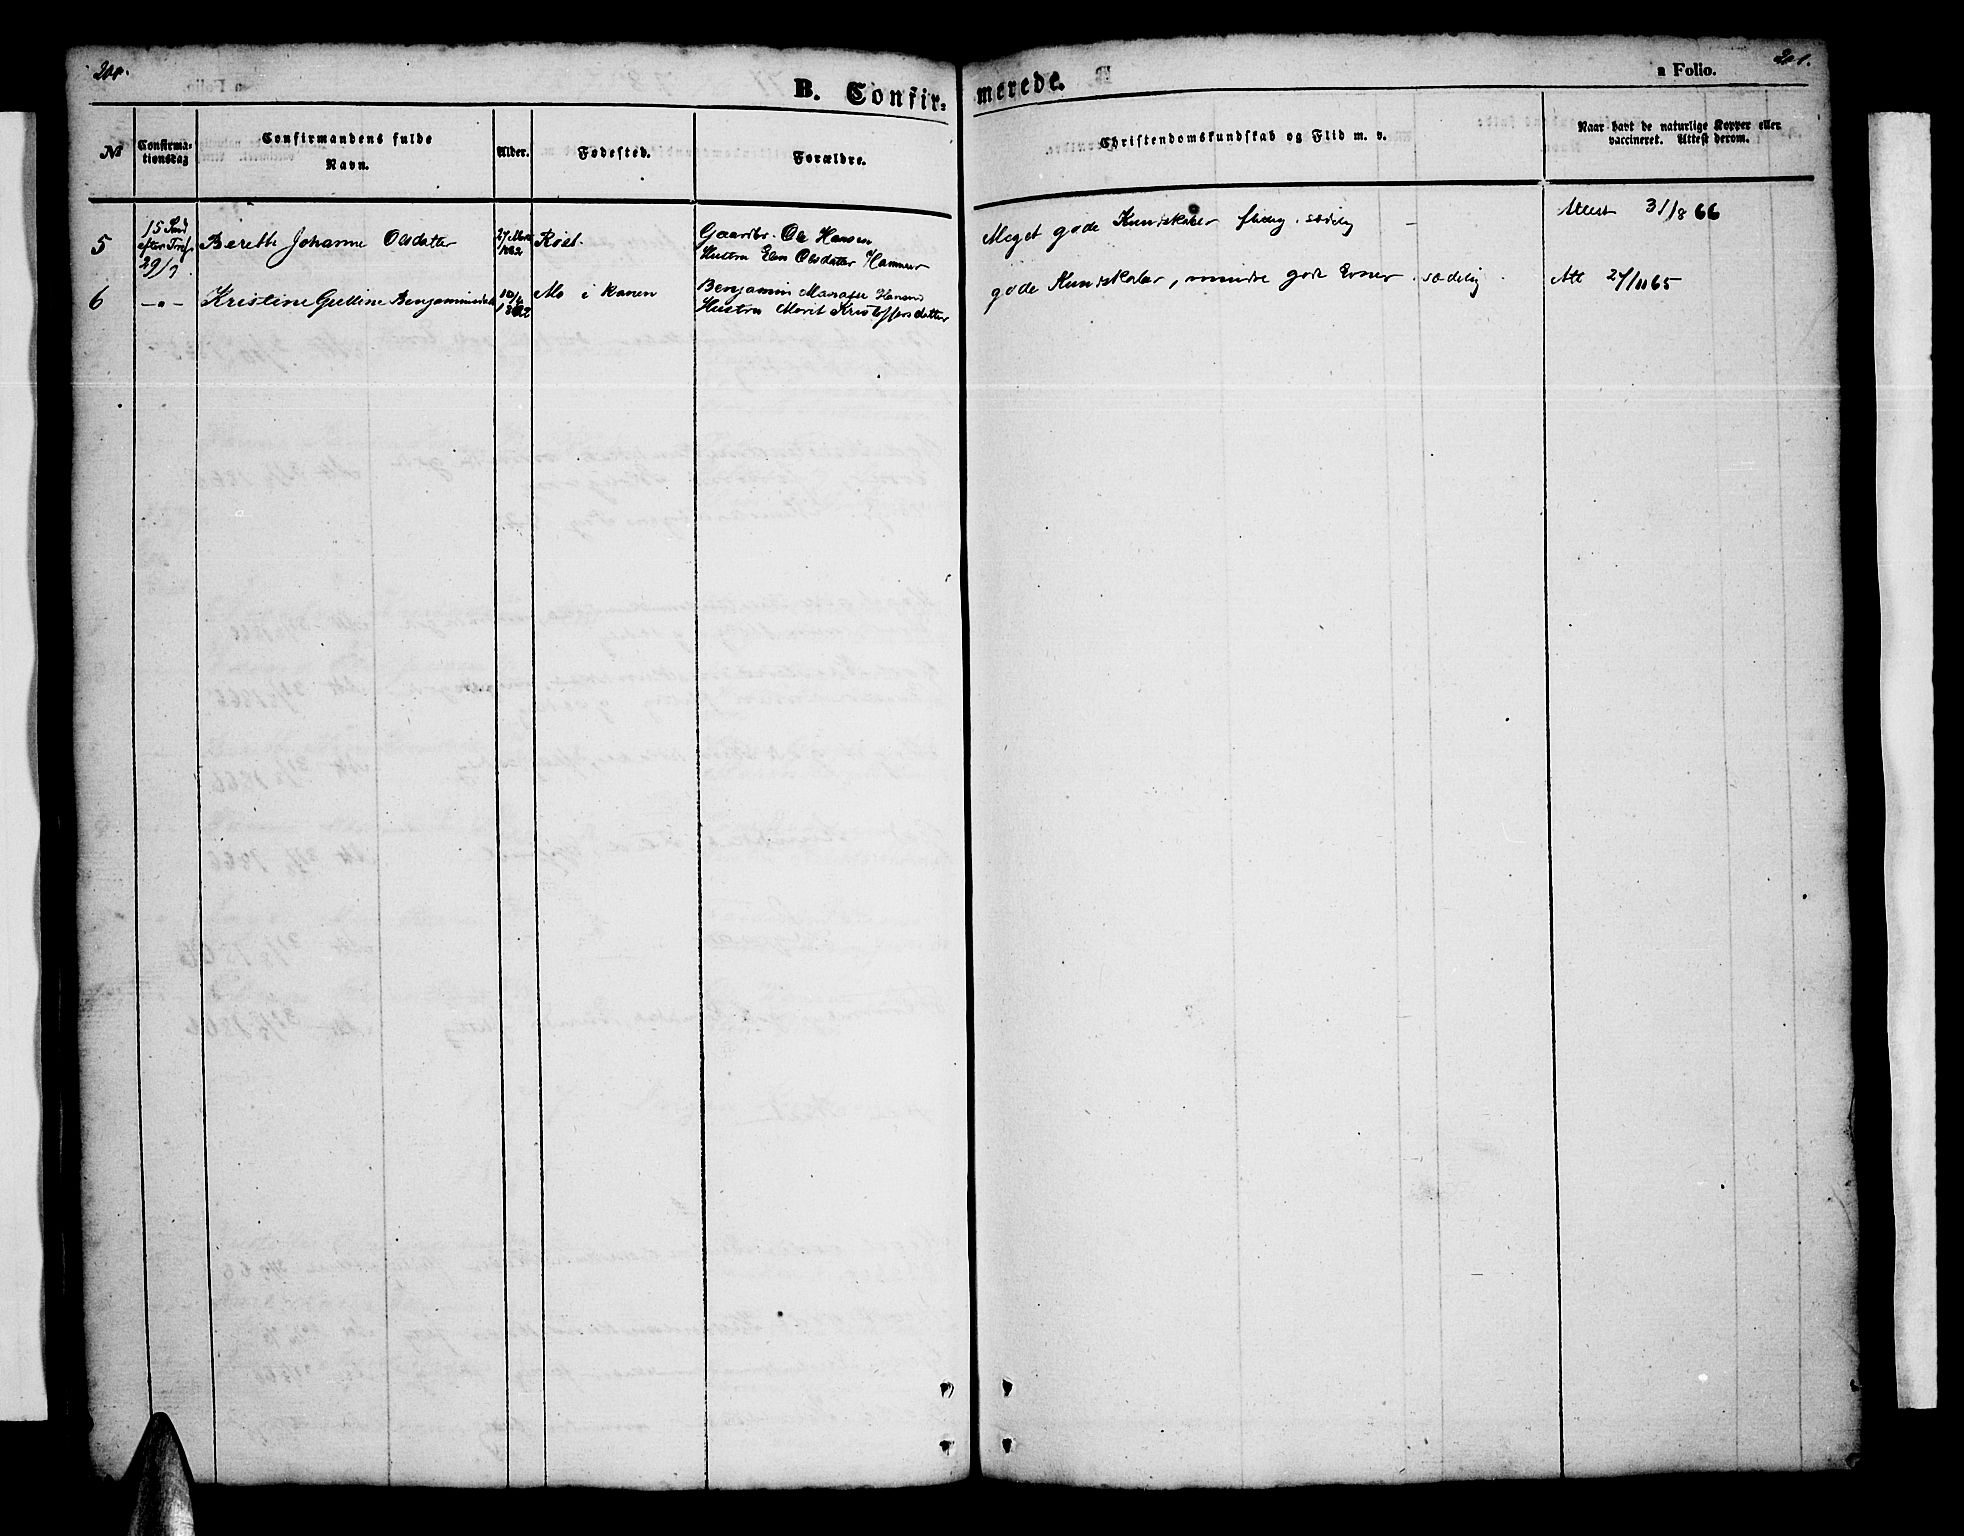 200.
201.
a Folio.
B. Confir-
merede.
№
Confirma-
tionsdag
Confirmandens fulde
Navn.
Alder.
Fødested.
Forældre.
Christendomskundskab og Flid m. v.
Naar havt de naturlige Kopper eller
vaccineret. Attest derom.
5
15 Sød
efter Tref.
29/9
Bereth Johanne Olsdatter
27 Marts
1862
Røst.
Gaardbr. Ole Hansen
Hustru Elen Olsdatter Hammer
Meget gode Kundskaber flidig. sædelig
Attest 31/8 66
6
-"-
Kristine Gurine Benjaminsdatter
1862
Mo i Ranen
Benjamin Manasse Hansen
Hustru Marit Kristoffersdatter
gode Kundskaber, mindre gode Evner. sædelig
Att 27/11 65